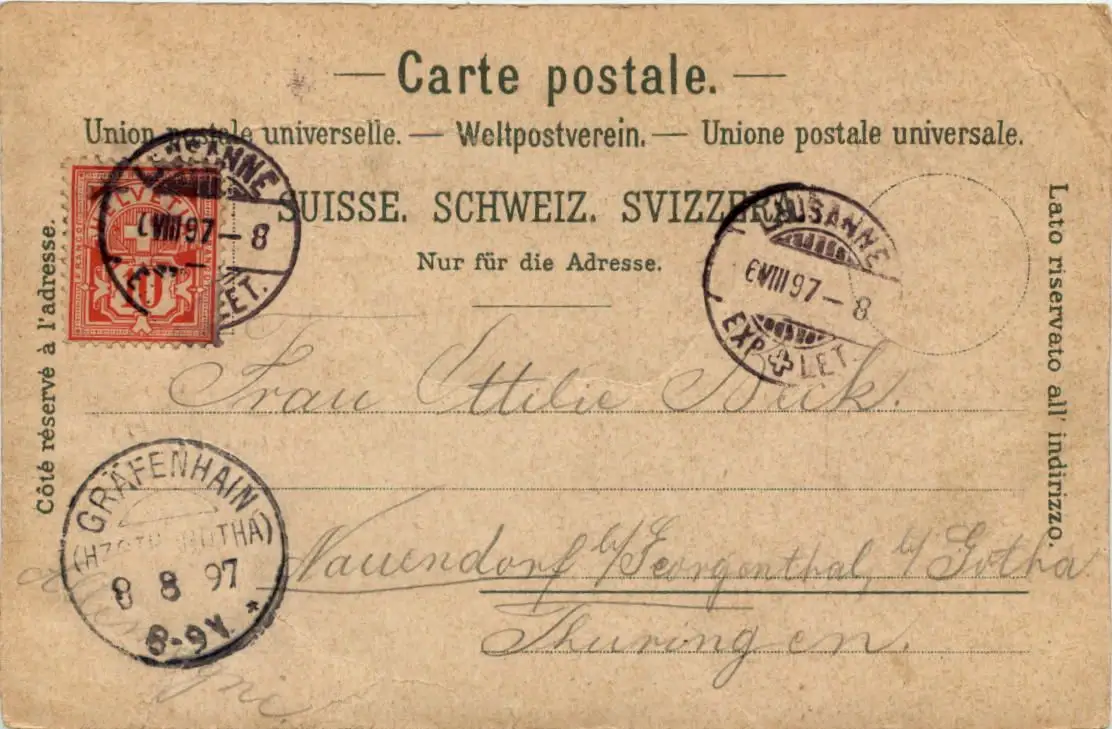 — Carte postale. —
Union postale universelle. — Weltpostverein. — Unione postale universale.
SUISSE. SCHWEIZ. SVIZZERA.
Nur für die Adresse.
Côté réservé à l'adresse.
Lato riservato all' indirizzo.
HELVETIA
10
LAUSANNE
6 VIII 97 – 8
EXP. LET.
LAUSANNE
6 VIII 97 – 8
EXP. LET.
Frau Ottilie Buck.
Nauendorf b/Georgenthal, b/Gotha
Thuringen.
Allemagne.
GRÄFENHAIN
(HZGTH. GOTHA)
8 8 97
8-9V. *